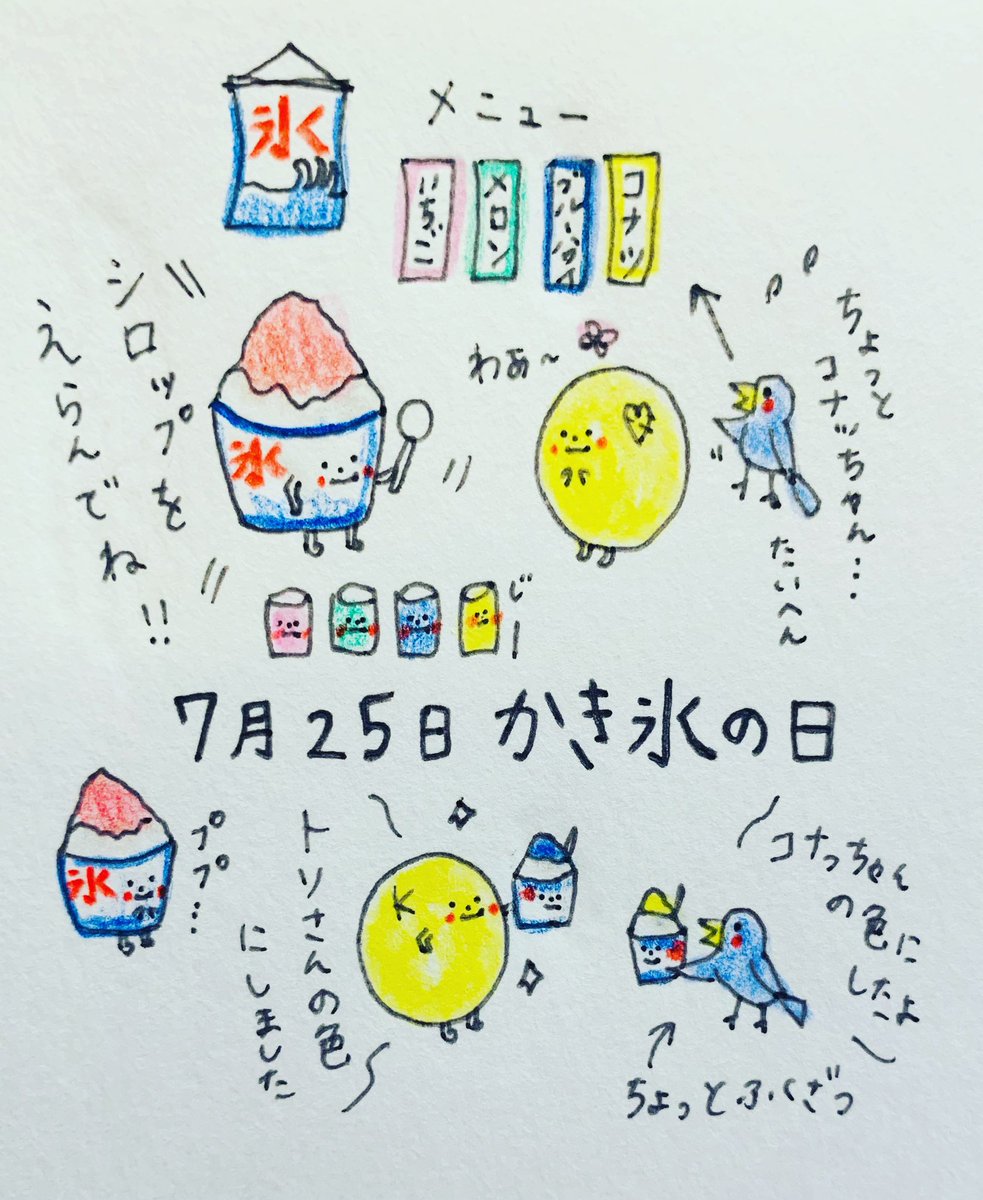 氷
メニュー
いちご
メロン
ブルーハワイ
コナツ
シロップを
えらんでね!!
氷
わぁ〜
ちょっと
コナッちゃん…
たいへん
じー
7月25日 かき氷の日
氷
ププ…
トリさんの色
にしました
K
コナっちゃん
の色に
したよ
ちょっとふくざつ